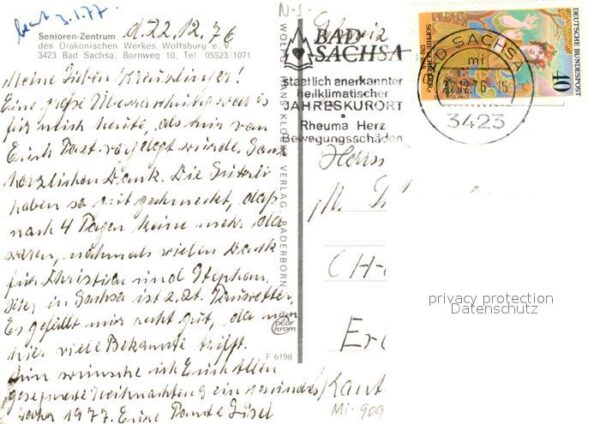 beant. 3.1.77.
d. 22.12.76
Senioren-Zentrum
des Diakonischen Werkes Wolfsburg e. V.
3423 Bad Sachsa. Bornweg 10, Tel. 05523/1071
Meine lieben Kreuzlinger!
Eine große Überraschung war es
für mich heute, als mir von
Euch Post vorgelegt wurde. Ganz
herzlichen Dank. Die Gutsli
haben so gut geschmeckt, daß
nach 4 Tagen keine mehr da
waren, nochmals vielen Dank
für Christian und Stephan.
Hier in Sachsa ist z.Zt. Tauwetter.
Es gefällt mir recht gut, da man
hier viele Bekannte trifft.
Nun wünsche ich Euch allen
gesegnete Weihnachten & ein gesundes
Jahr 1977. Eure Tante Gisel
WOLFG. HANS KLOCKE VERLAG PADERBORN
F 6198
N-S
Schweiz
BAD
SACHSA
staatlich anerkannter
heilklimatischer
JAHRESKURORT
Rheuma Herz
Bewegungsschäden
BAD SACHSA
mi
22.12.76-15
3423
DEUTSCHE BUNDESPOST
40
Herrn
M.
CH-
Kant
Mi-909
privacy protection
Datenschutz